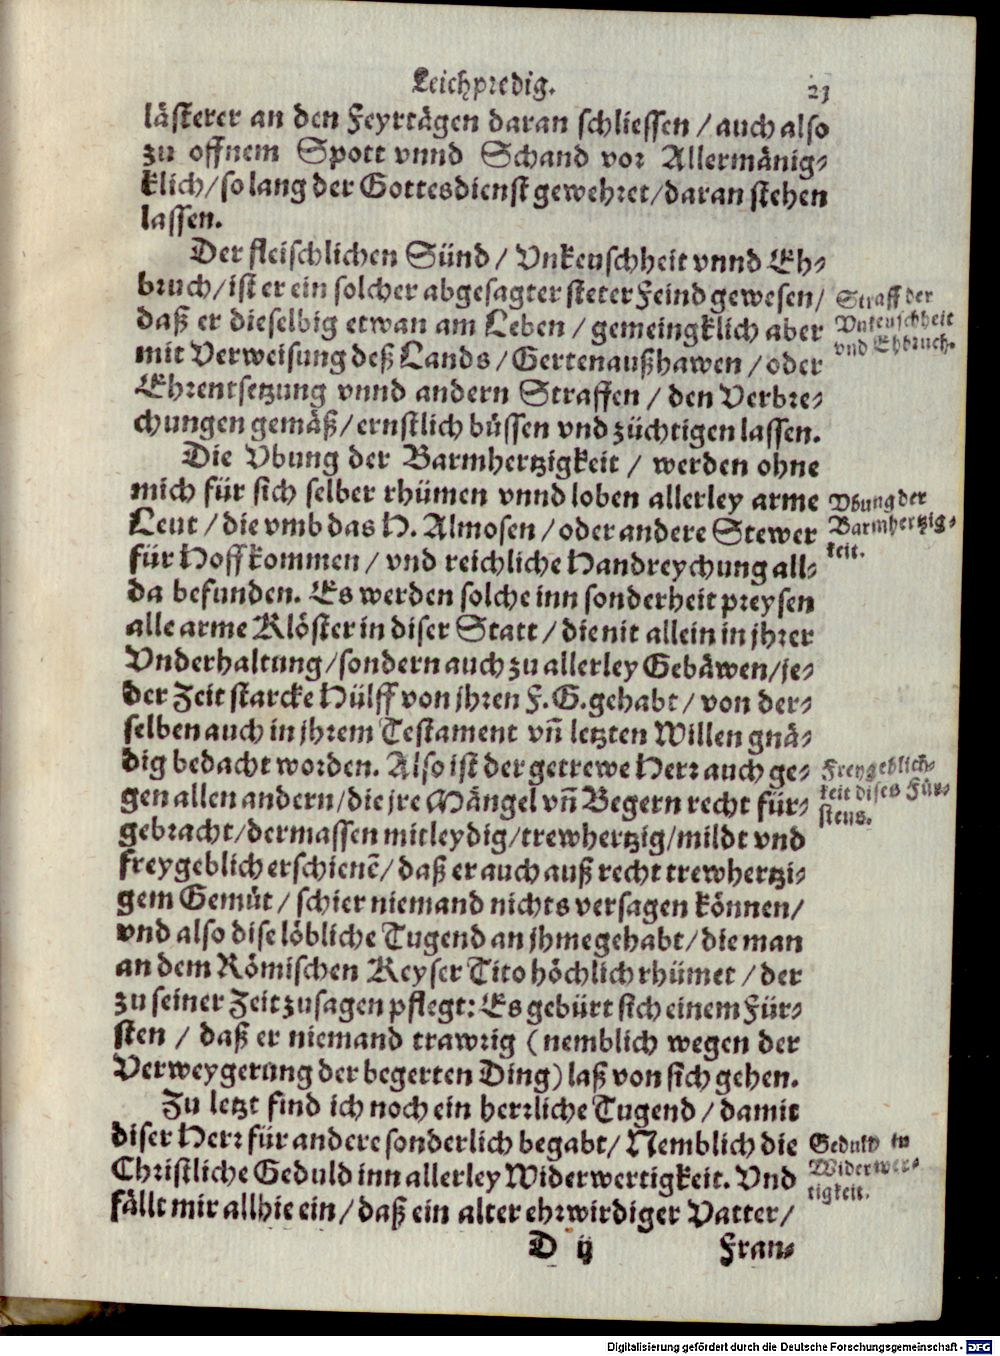 Leichpredig. 23
lästerer an den Feyrtägen daran schliessen / auch also
zu offnem Spott vnnd Schand vor Allermänig-
klich/so lang der Gottesdienst gewehret/daran stehen
lassen.
Der fleischlichen Sünd / Vnkeuschheit vnnd Eh-
bruch/ist er ein solcher abgesagter steter Feind gewesen/
daß er dieselbig etwan am Leben / gemeingklich aber
mit Verweisung deß Lands / Gertenaußhawen / oder
Ehrentsetzung vnnd andern Straffen / den Verbre-
chungen gemäß/ernstlich büssen vnd züchtigen lassen.
Straff der
Vnkeuschheit
vnd Ehbruch.
Die Vbung der Barmhertzigkeit / werden ohne
mich für sich selber rhümen vnnd loben allerley arme
Leut / die vmb das H. Almosen / oder andere Stewer
für Hoff kommen / vnd reichliche Handreychung all-
da befunden. Es werden solche inn sonderheit preysen
alle arme Klöster in diser Statt / die nit allein in jhrer
Vnderhaltung/sondern auch zu allerley Gebäwen/je-
der Zeit starcke Hülff von jhren F. G. gehabt / von der-
selben auch in jhrem Testament vñ letzten Willen gnä-
dig bedacht worden. Also ist der getrewe Herr auch ge-
gen allen andern/die jre Mängel vñ Begern recht für-
gebracht/dermassen mitleydig/trewhertzig/mildt vnd
freygeblich erschienē/ daß er auch auß recht trewhertzi-
gem Gemüt / schier niemand nichts versagen können/
vnd also dise löbliche Tugend an jhme gehabt/die man
an dem Römischen Keyser Tito höchlich rhümet / der
zu seiner Zeit zusagen pflegt: Es gebürt sich einem Für-
sten / daß er niemand trawrig (nemblich wegen der
Verweygerung der begerten Ding) laß von sich gehen.
Vbung der
Barmhertzig-
keit.
Freygeblich-
keit dises Für-
stens.
Zu letzt find ich noch ein herrliche Tugend / damit
diser Herr für andere sonderlich begabt/ Nemblich die
Christliche Geduld inn allerley Widerwertigkeit. Vnd
fällt mir allhie ein / daß ein alter ehrwirdiger Vatter/
Geduld in
Widerwer-
tigkeit.
D ij Fran-
Digitalisierung gefördert durch die Deutsche Forschungsgemeinschaft - DFG